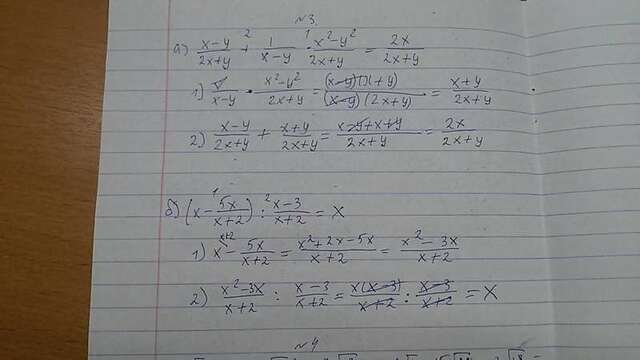 №3
а) (x-y)/(2x+y) + 1/(x-y) · (x²-y²)/(2x+y) = 2x/(2x+y)
1) 1/(x-y) · (x²-y²)/(2x+y) = (x-y)(x+y)/(x-y)(2x+y) = (x+y)/(2x+y)
2) (x-y)/(2x+y) + (x+y)/(2x+y) = (x-y+x+y)/(2x+y) = 2x/(2x+y)
б) (x - 5x/(x+2)) : (x-3)/(x+2) = x
1) x - 5x/(x+2) = (x²+2x-5x)/(x+2) = (x²-3x)/(x+2)
2) (x²-3x)/(x+2) : (x-3)/(x+2) = x(x-3)/(x+2) : (x-3)/(x+2) = x
№4